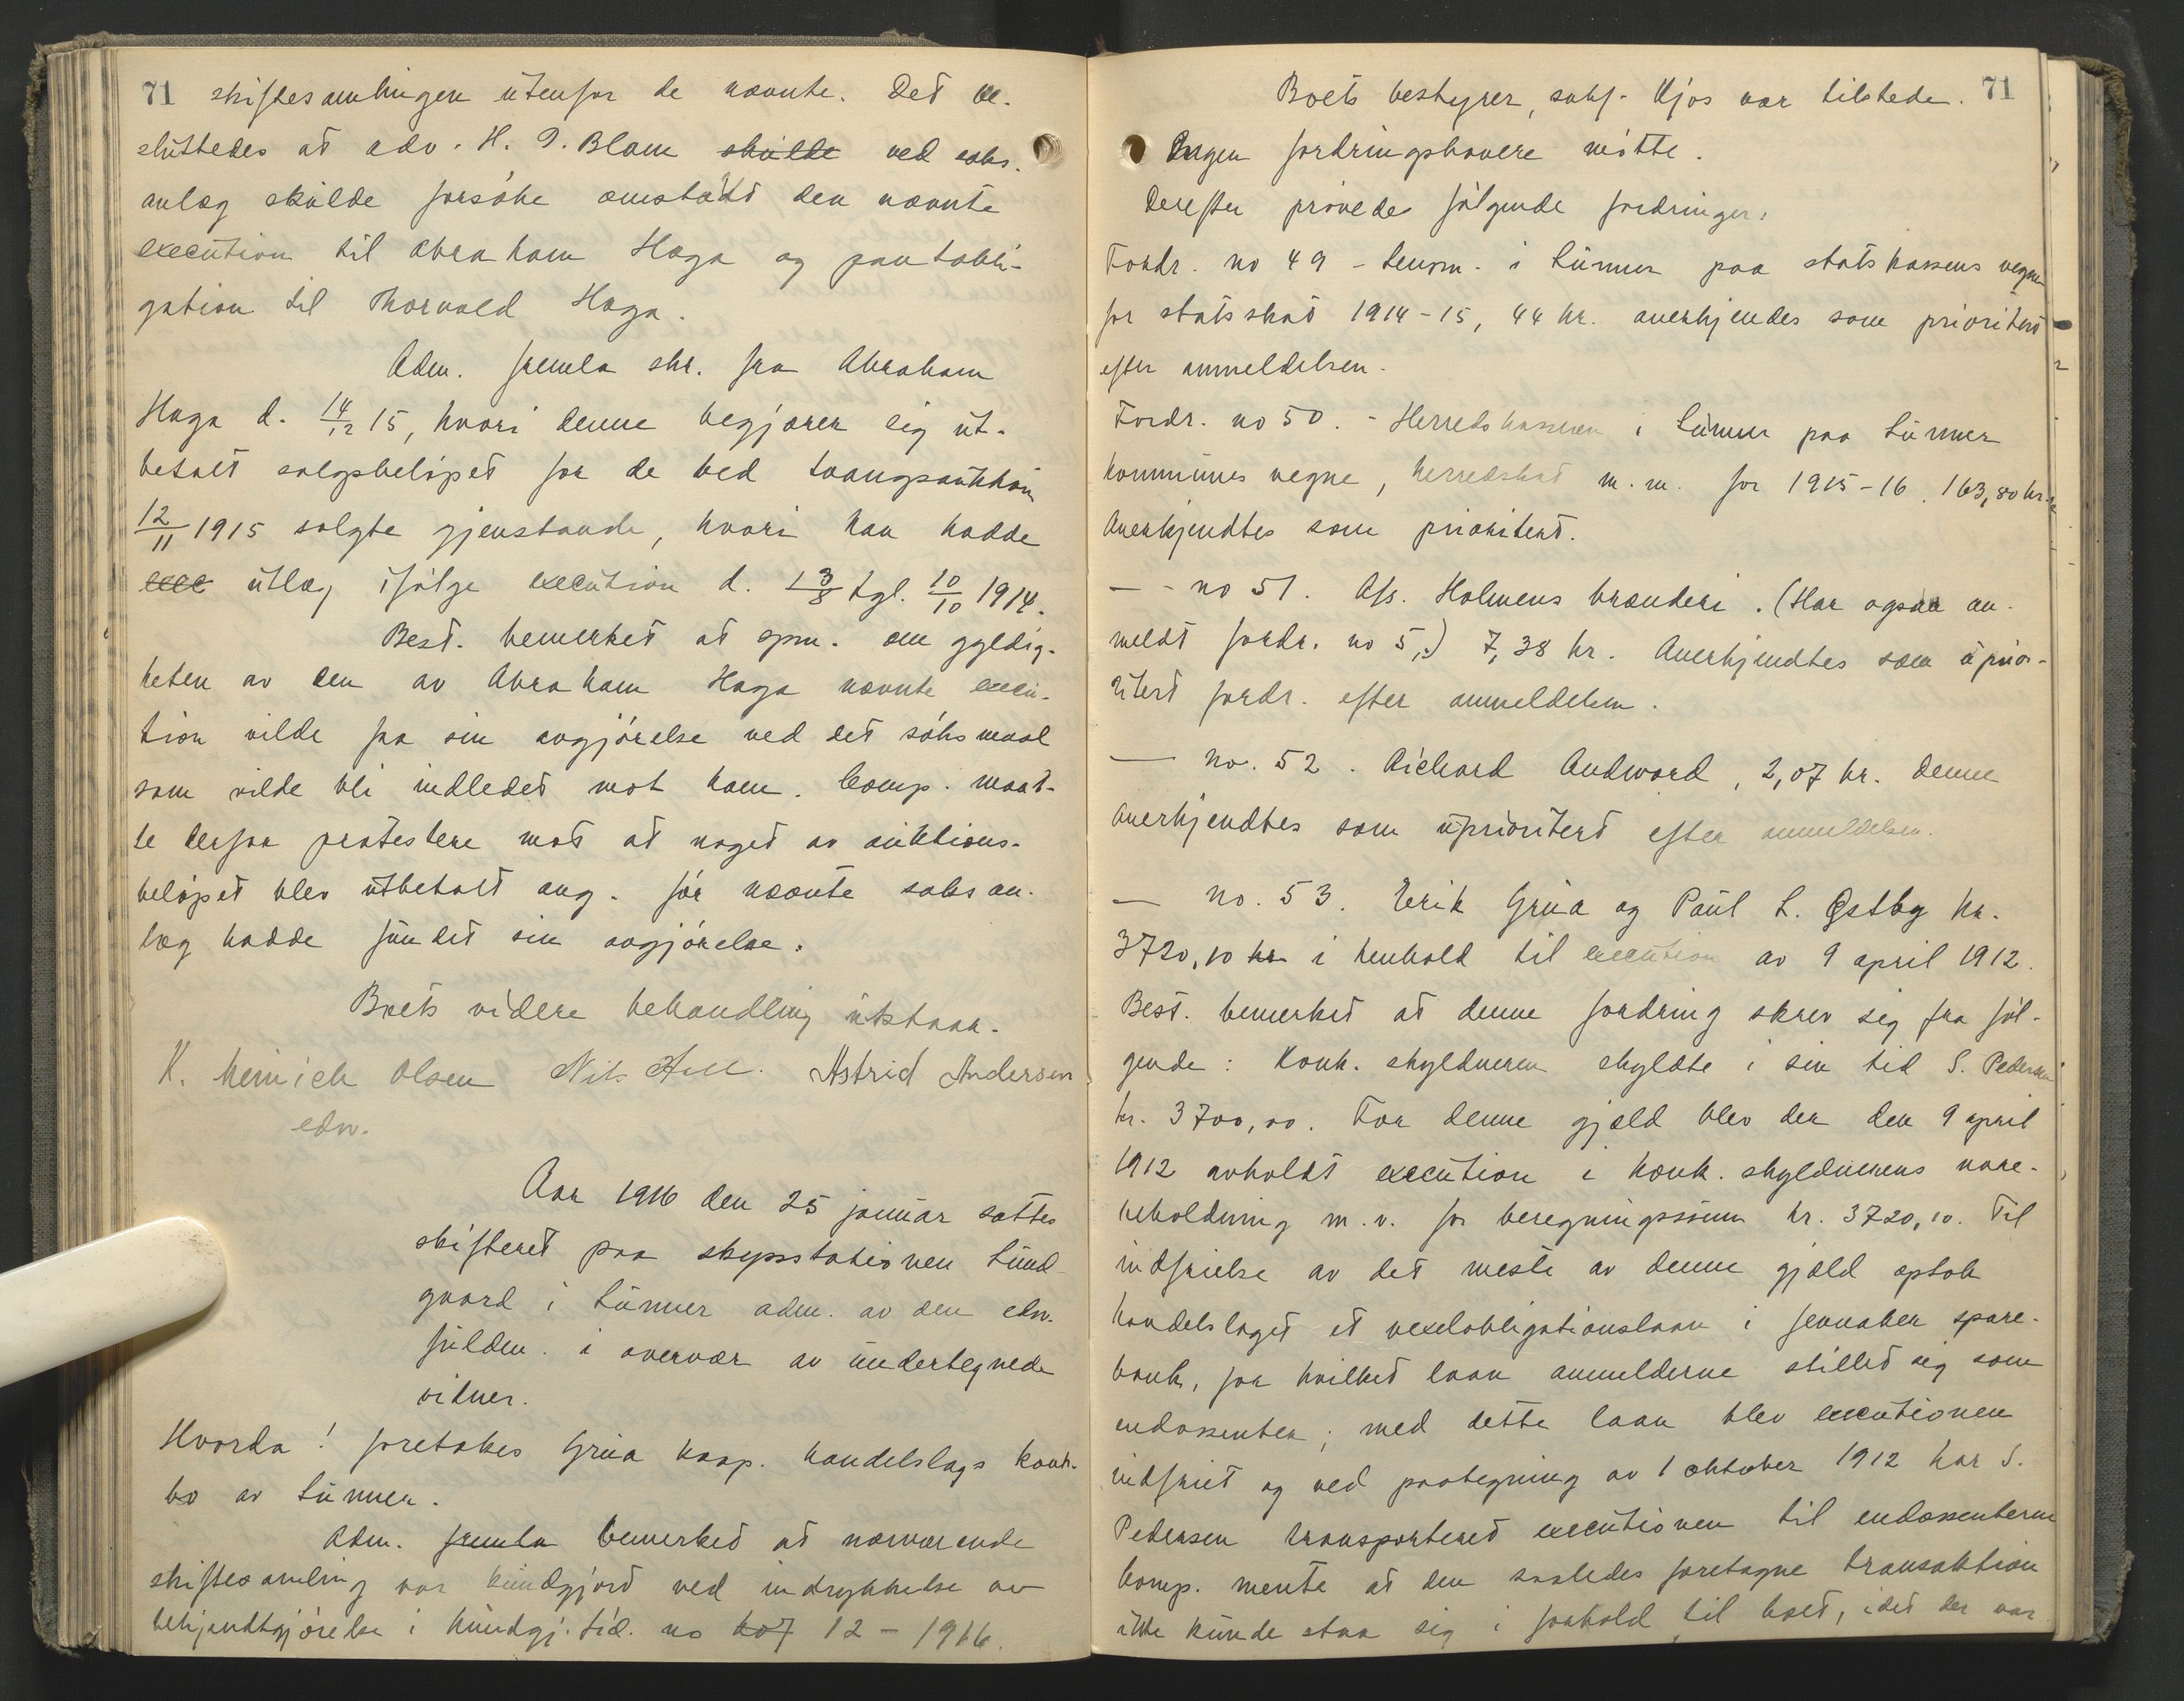 71 skiftesamlingen utenfor de nævnte. Det be-
sluttedes at adv. H. I. Blom skulde ved saks-
anlæg skulde forsøke omstødt den nævnte
execution til Abraham Haga og pantobli-
gation til Thorvald Haga.
Adm. fremla skr. fra Abraham
Haga d. 14/12 15, hvori denne begjærer sig ut-
betalt salgsbeløpet for de ved tvangsauktion
12/11 1915 solgte gjenstande, hvori han hadde
exec utlæg ifølge execution d. 13/8 tgl. 10/10 1914.
Best. bemerket at spm. om gyldig-
heten av den av Abraham Haga nævnte execu-
tion vilde faa sin avgjørelse ved det søksmaal
som vilde bli indledet mot ham. Comp. maat-
te derfor protestere mot at noget av auktions-
beløpet blev utbetalt ang. før nævnte saksan-
læg hadde fundet sin avgjørelse.
Boets videre behandling utstaar.
K. Meinich Olsen Nils Astrid Andersen
edv.
Aar 1916 den 25 januar sattes
skifteret paa skysstationen Lund
gaard i Lunner adm. av den edv.
fuldm. i overvær av undertegnede
vidner.
Hvorda! foretokes Grua koop. handelslags konk.
bo av Lunner.
Adm. fremla bemerket at nærværende
skiftesamling var kundgjort ved indrykkelse av
bekjendtgjørelse i kundgj. tid. no 107 12 - 1916.
Boets bestyrer, sakf. Kjos var tilstede. 71
Ingen fordringshavere møtte.
Derefter prøvedes følgende fordringer:
Fordr. no 49 - Lensm. i Lunner paa statskassens vegne
for statsskat 1914-15, 44 kr. anerkjendes som prioritert
efter anmeldelsen.
Fordr. no 50. - Herredskassereren i Lunner paa Lunner
kommunes vegne, herredskat m.m. for 1915-16. 163,80 kr.
Anerkjendtes som prioritert.
— - no 51. A/s. Holmens brænderi. (Har ogsaa an-
meldt fordr. no 5,) 7,38 kr. Anerkjendtes som uprior-
itert fordr. efter anmeldelsen.
— no. 52. Richard Andvord, 2,07 kr. denne
anerkjendtes som uprioritert efter anmeldelsen.
— no. 53. Erik Grua og Paul L. Østby kr.
3720,10 kr i henhold til execution av 9 april 1912.
Best. bemerket at denne fordring skrev sig fra føl-
gende: Konk. skyldneren skyldte i sin tid S. Pedersen
kr. 3700,00. For denne gjæld blev der den 9 april
1912 avholdt execution i konk. skyldnerens vare-
beholdning m.v. for beregningssum kr. 3720,10. Til
indfrielse av det meste av denne gjæld optok
handelslaget et vexelobligationslaan i Jevnaker spare-
bank, for hvilket laan anmelderne stillet sig som
endossenter; med dette laan blev executionen
indfriet og ved paategning av 1 oktober 1912 har S.
Pedersen transporteret executionen til endossenterne
Comp. mente at den saaledes foretagne transaktion
ikke kunde staa sig i forhold til boet, idet der var